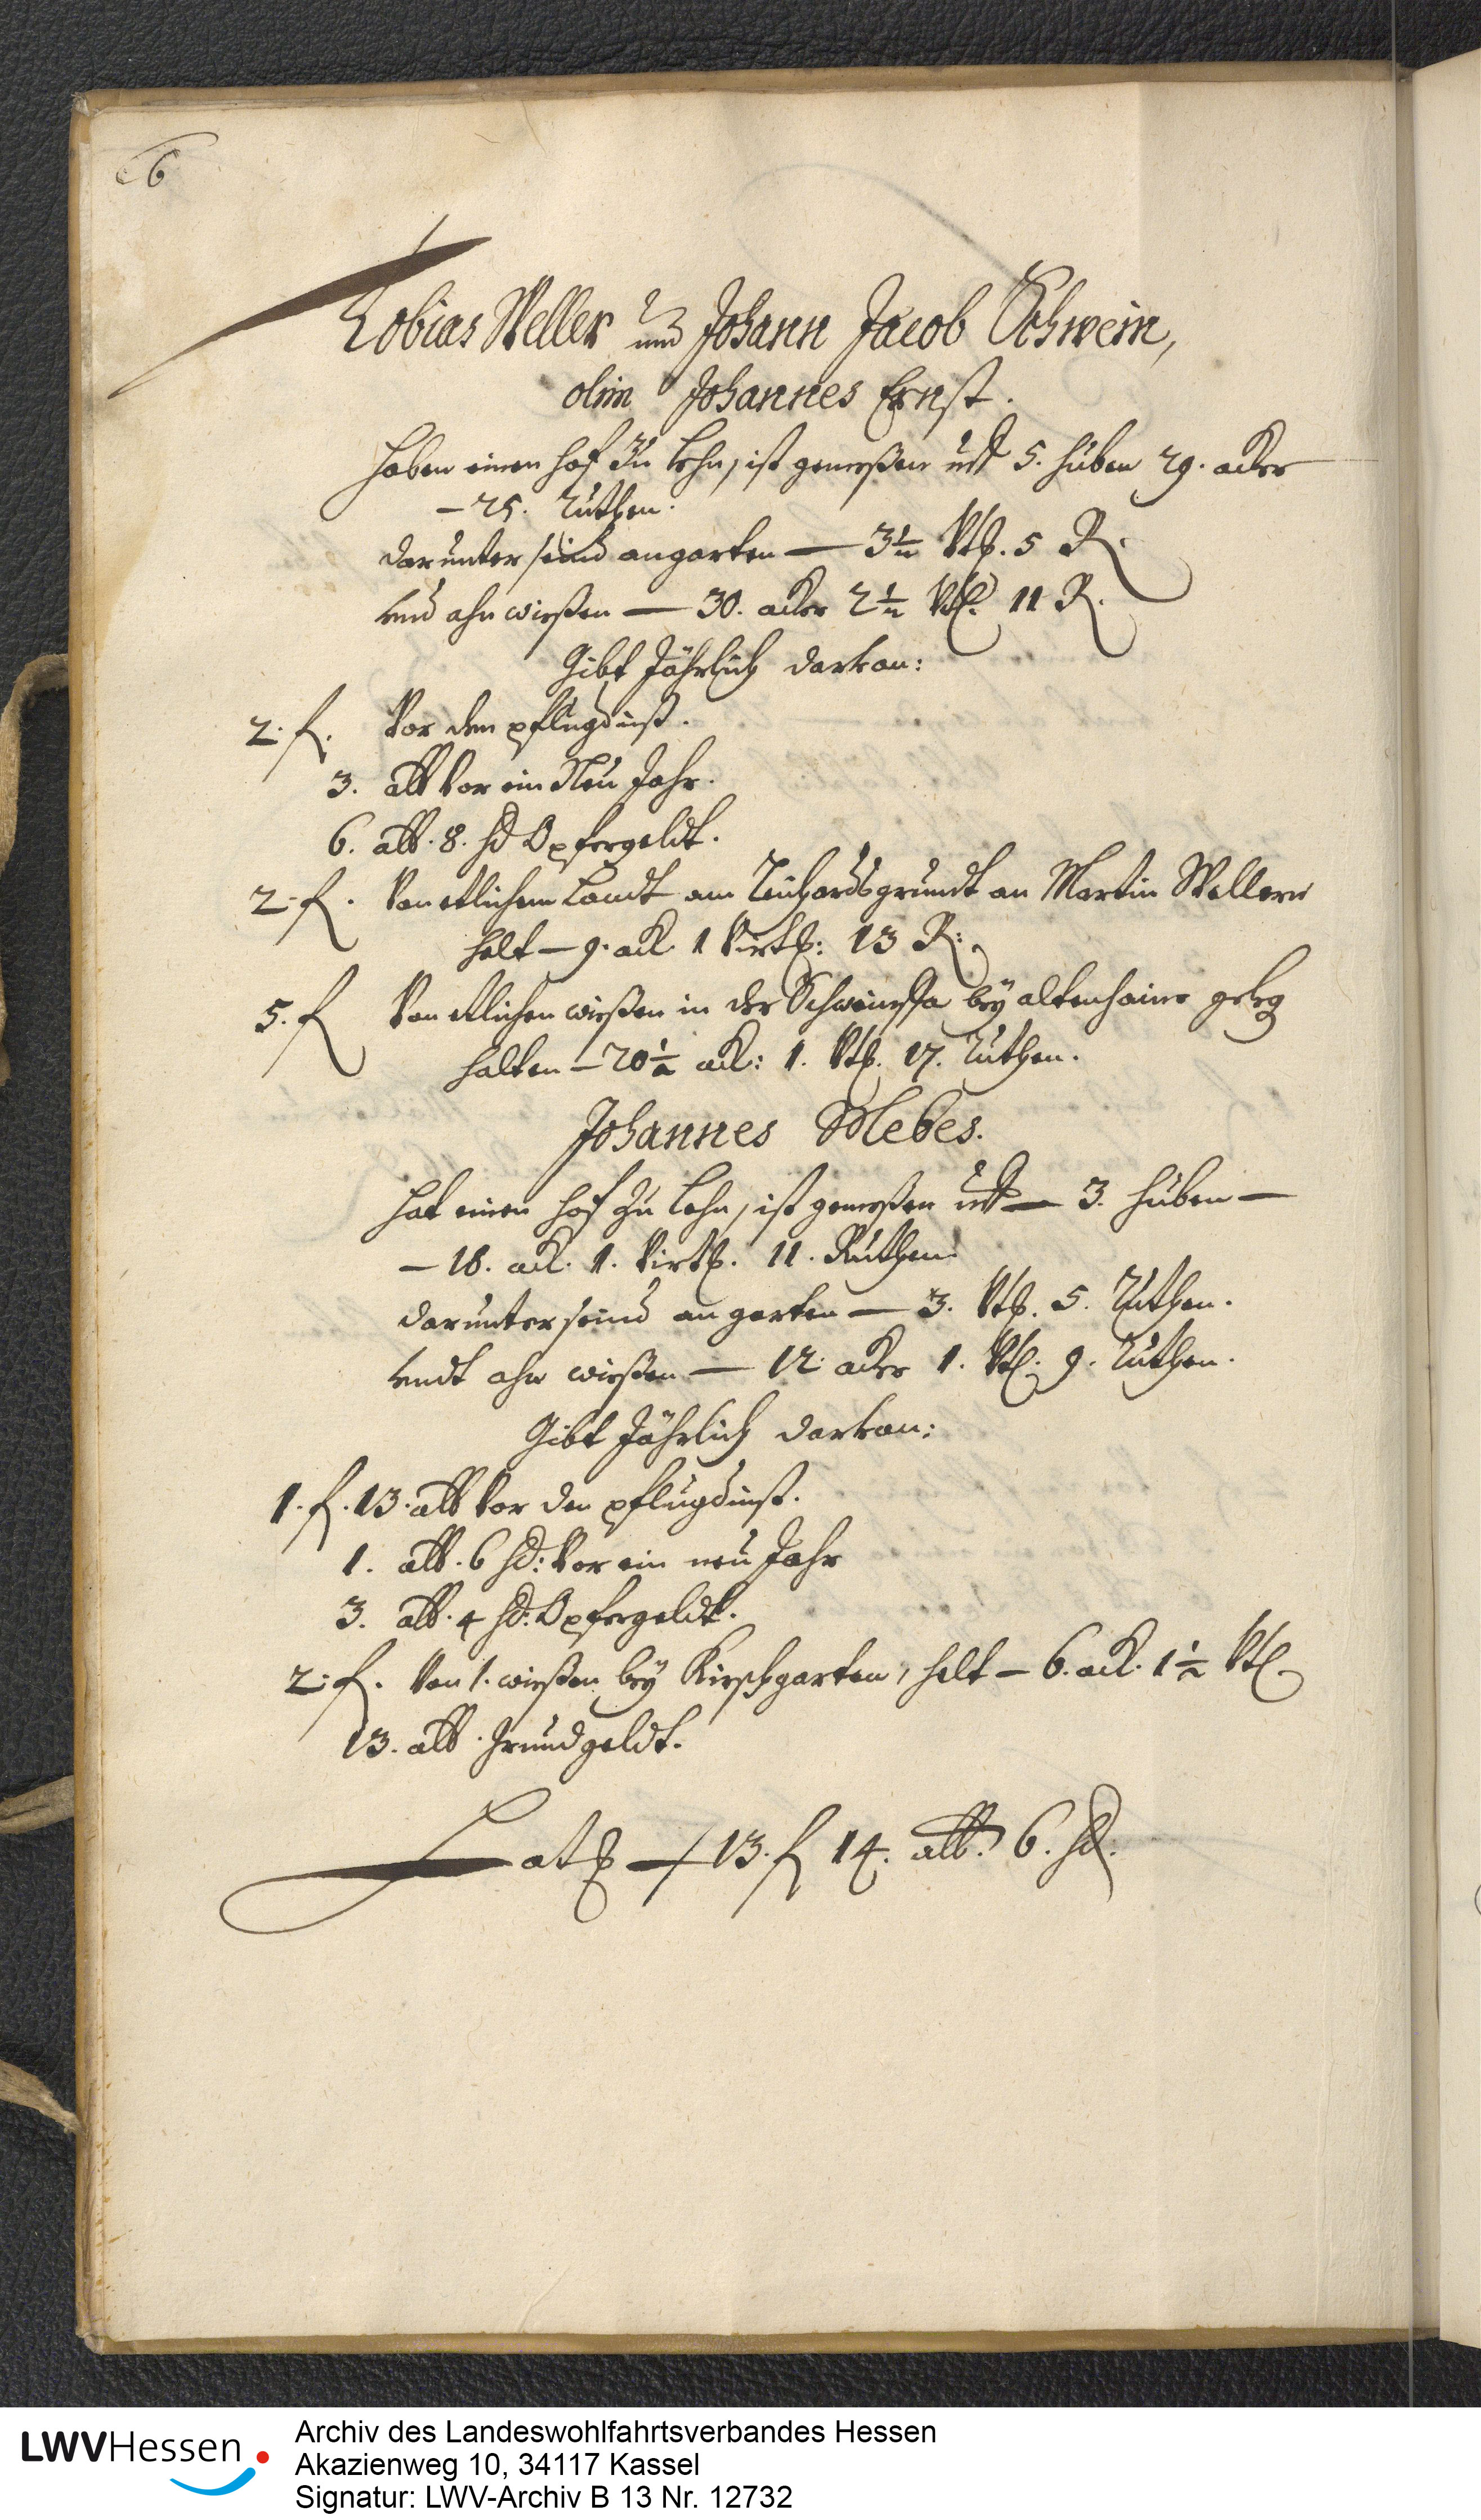 6
Tobias Weller und Johann Jacob Schwein,
olim Johannes Ernst.
Haben einen hof zu Lehn, ist gemeßen uff 5. huben 29. acker
– 25. Ruthen.
darunter seind an garten — 3½ Vtl. 5 R.
vnd ahn wießen — 30. acker 2½ Vtl. 11 R.
Gibt Jährlich darvon:
2. f. Vor den pflugdinst.
3. alb Vor ein Neu Jahr.
6. alb. 8. hl Opfergeldt.
2. f. Von etlichem Landt am grundt an Martin Wellern
helt – 9. ack 1 Virtl: 13 R:
5. f Von etlichen wießen in der bey altenhaine geleg
halten – 20½ ack: 1. Vtl. 17. Ruthen.
Johannes Mebes.
Hat einen hof zu Lehn, ist gemeßen uff — 3. huben —
– 18. ack. 1. Virtl. 11. Ruthen.
darunter seind an garten — 3. Vtl. 5. Ruthen.
vndt ahn wießen — 12. acker 1. Vtl. 9. Ruthen.
Gibt Jährlich darvon:
1. f. 13. alb Vor den pflugdinst.
1. alb. 6 hl: Vor ein neu Jahr
3. alb. 4 hl. Opfergeldt.
2. f. Von 1. wießen bey Kirschgarten, helt – 6. ack. 1½ Vtl
13. alb. Grundgeldt.
Latq — 13. f 14. alb. 6. hl.
LWVHessen
Archiv des Landeswohlfahrtsverbandes Hessen
Akazienweg 10, 34117 Kassel
Signatur: LWV-Archiv B 13 Nr. 12732